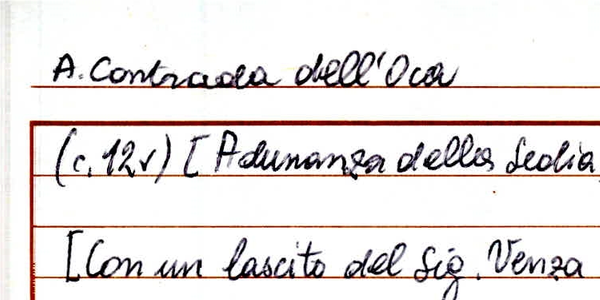 A. Contrada dell'Oca
(c. 12v) [Adunanza della Sedia
[Con un lascito del Sig. Venza